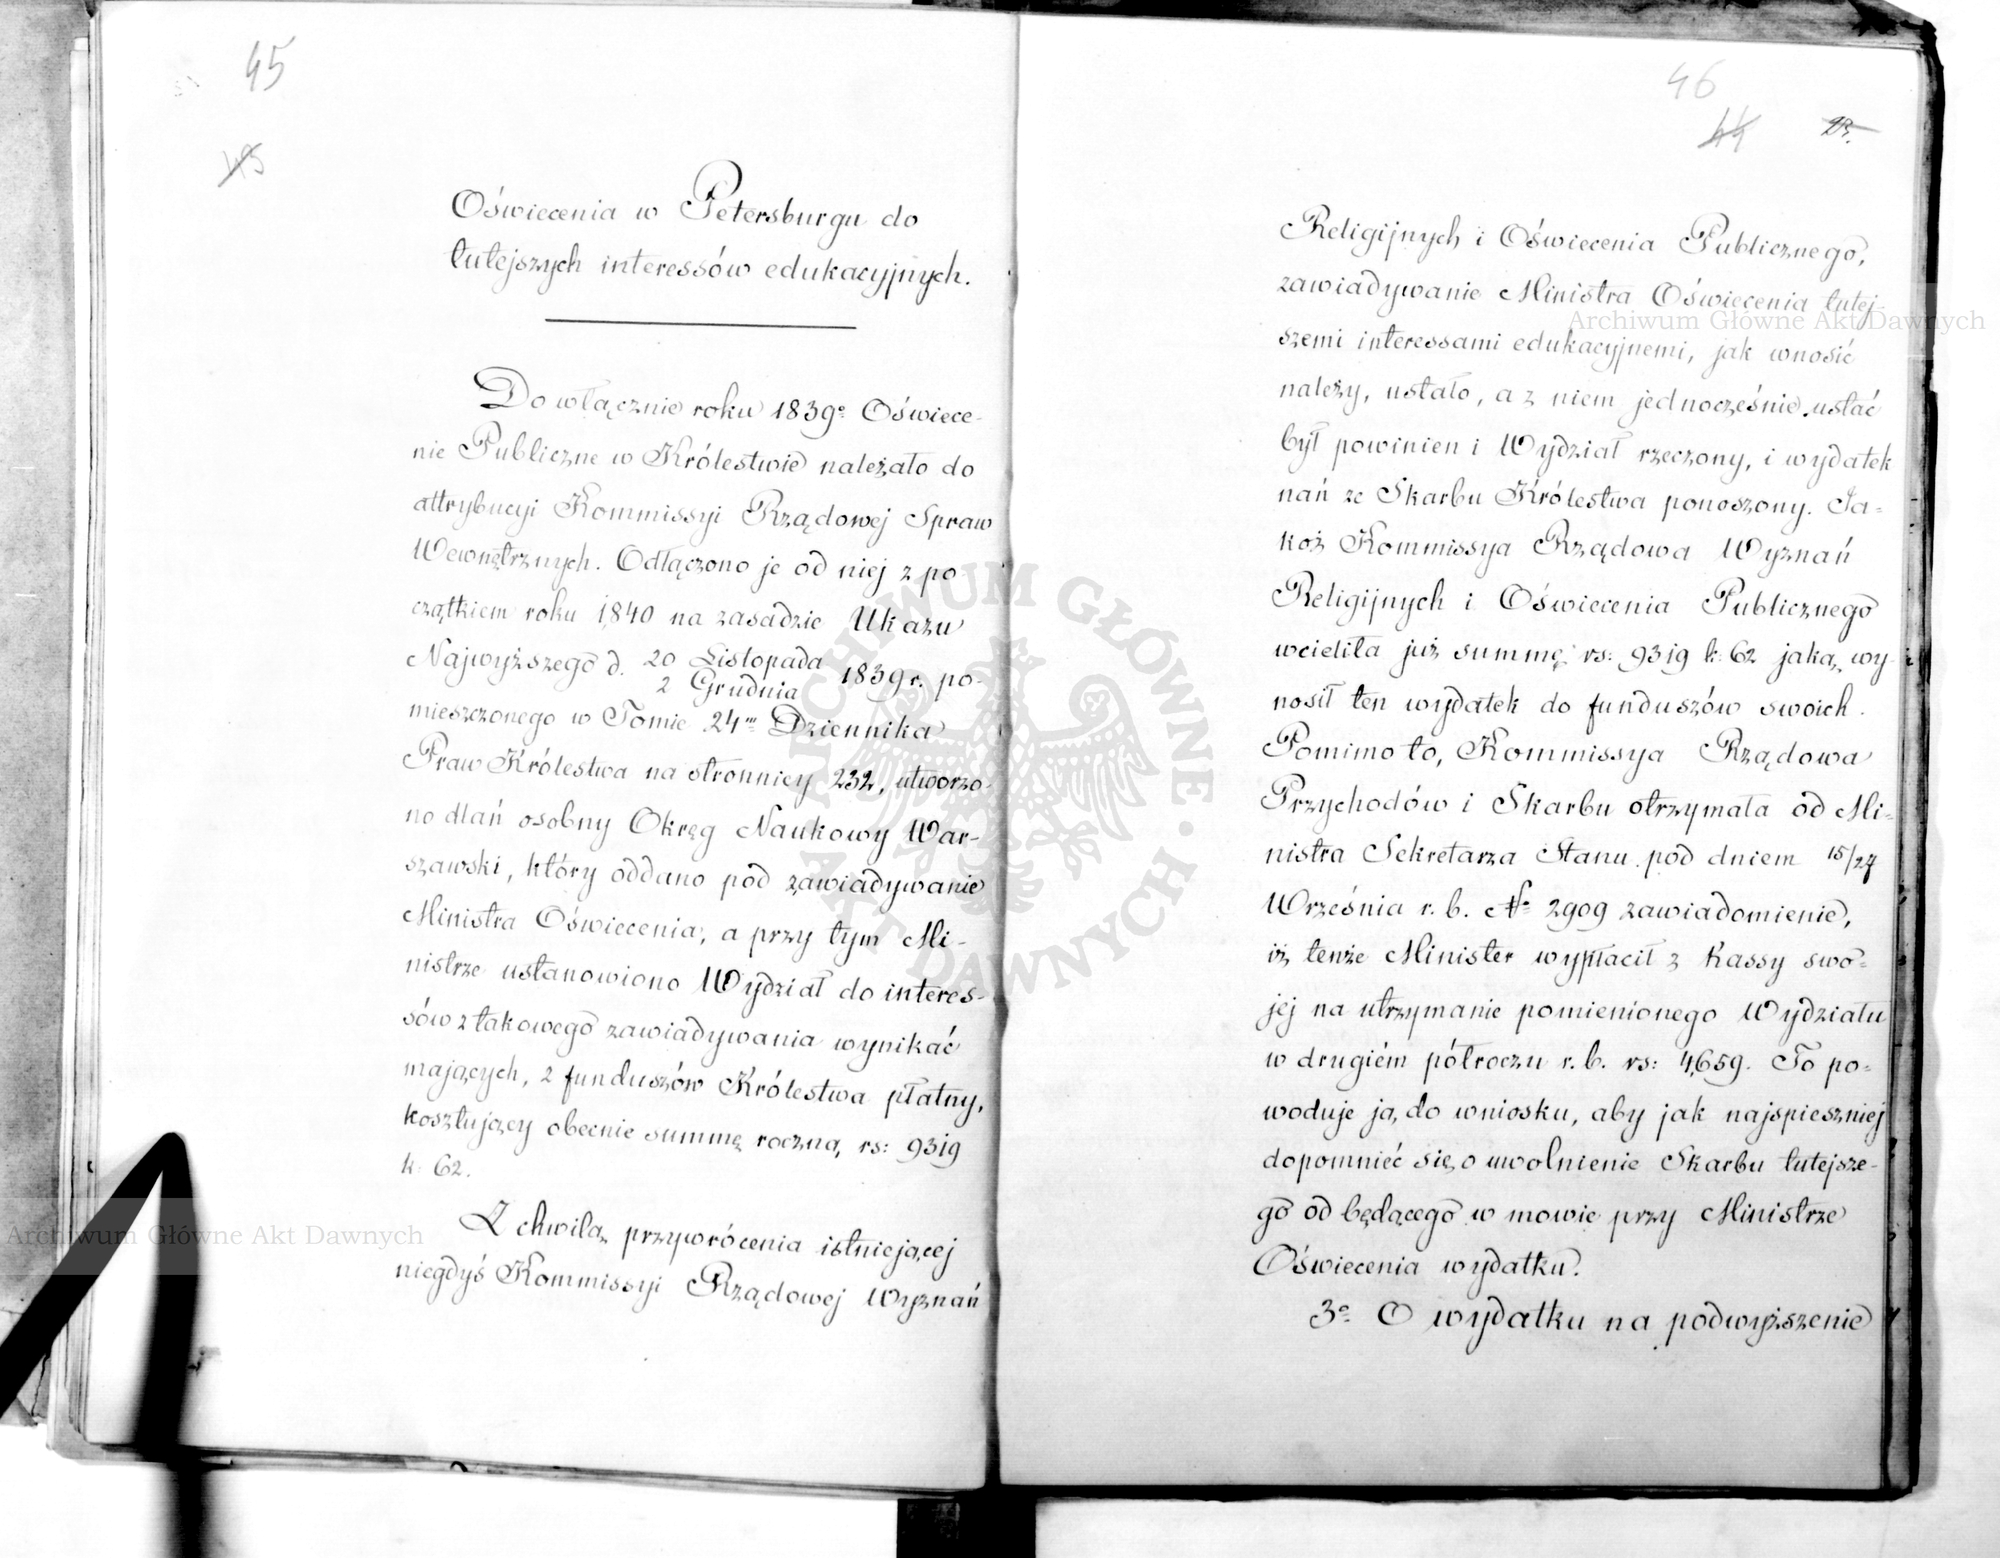 45
43
Oświecenia w Petersburgu do
tutejszych interessów edukacyjnych.
Do włącznie roku 1839o Oświece-
nie Publiczne w Królestwie należało do
attrybucyi Kommissyi Rządowej Spraw
Wewnętrznych. Odłączono je od niej z po
czątkiem roku 1840 na zasadzie Ukazu
Najwyższego d. 20 Listopada / 2 Grudnia 1839 r. po-
mieszczonego w Tomie 24m Dziennika
Praw Królestwa na stronnicy 232, utworzo-
no dlań osobny Okręg Naukowy War-
szawski, który oddano pod zawiadywanie
Ministra Oświecenia, a przy tym Mi-
nistrze ustanowiono Wydział do interes-
sów z takowego zawiadywania wynikać
mających, z funduszów Królestwa płatny,
kosztujący obecnie summę roczną rs: 9319
k: 62.
Z chwilą przywrócenia istniejącej
niegdyś Kommissyi Rządowej Wyznań
46
44
23.
Religijnych i Oświecenia Publicznego,
zawiadywanie Ministra Oświecenia tutej-
szemi interessami edukacyjnemi, jak wnosić
należy, ustało, a z niem jednocześnie ustać
był powinien i Wydział rzeczony, i wydatek
nań ze Skarbu Królestwa ponoszony. Ja-
koż Kommissya Rządowa Wyznań
Religijnych i Oświecenia Publicznego
wcieliła już summę rs: 9319 k: 62 jaką wy-
nosił ten wydatek do funduszów swoich.
Pomimo to, Kommissya Rządowa
Przychodów i Skarbu otrzymała od Mi-
nistra Sekretarza Stanu pod dniem 15/27
Września r. b. No 2909 zawiadomienie,
iż tenże Minister wypłacił z Kassy swo-
jej na utrzymanie pomienionego Wydziału
w drugiém półroczu r. b. rs: 4,659. To po-
woduje ją do wniosku, aby jak najspieszniej
dopomnieć się o uwolnienie Skarbu tutejsze-
go od będącego w mowie przy Ministrze
Oświecenia wydatku.
3o O wydatku na podwyższenie
Archiwum Główne Akt Dawnych
Archiwum Główne Akt Dawnych
ARCHIWUM GŁÓWNE AKT DAWNYCH